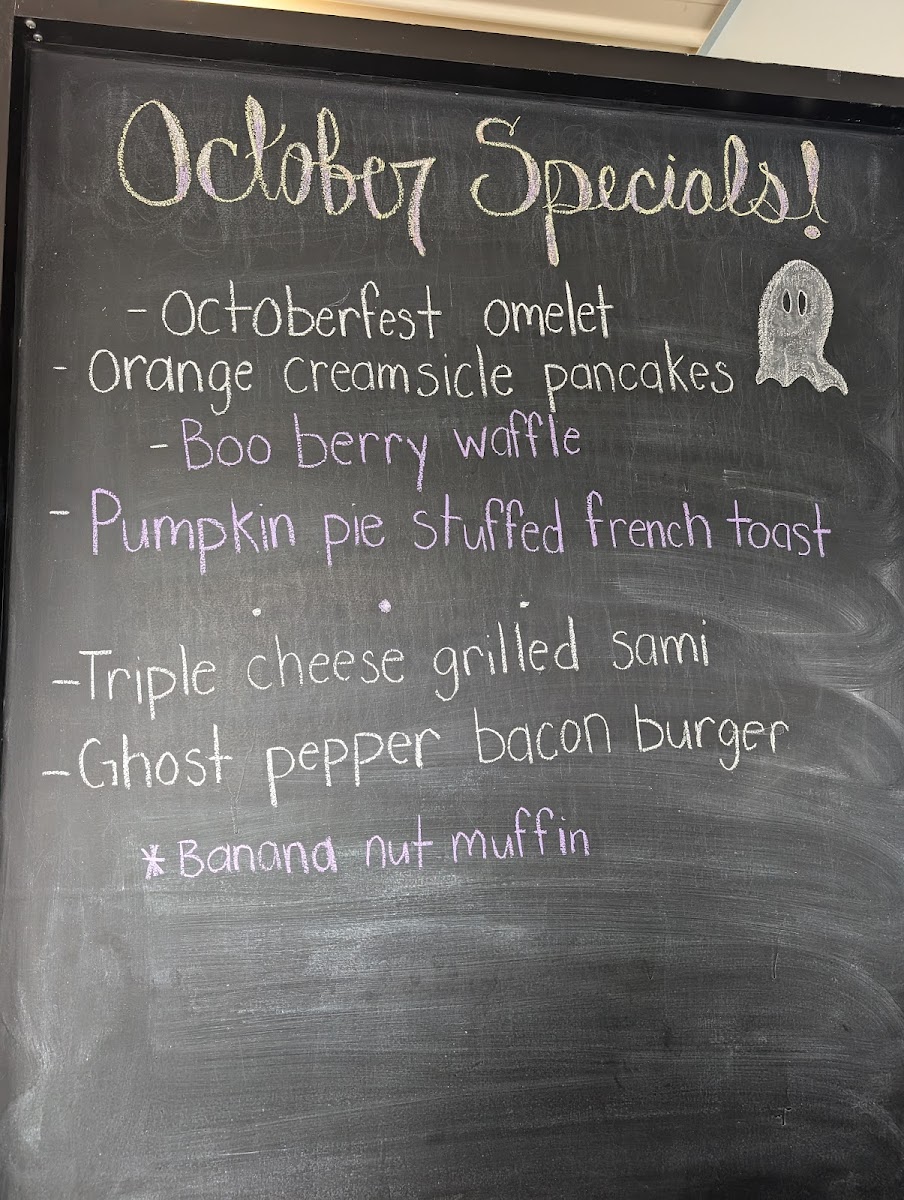 October Specials!
- Octoberfest omelet
- Orange creamsicle pancakes
- Boo berry waffle
- Pumpkin pie stuffed french toast
. . .
- Triple cheese grilled sami
- Ghost pepper bacon burger
* Banana nut muffin